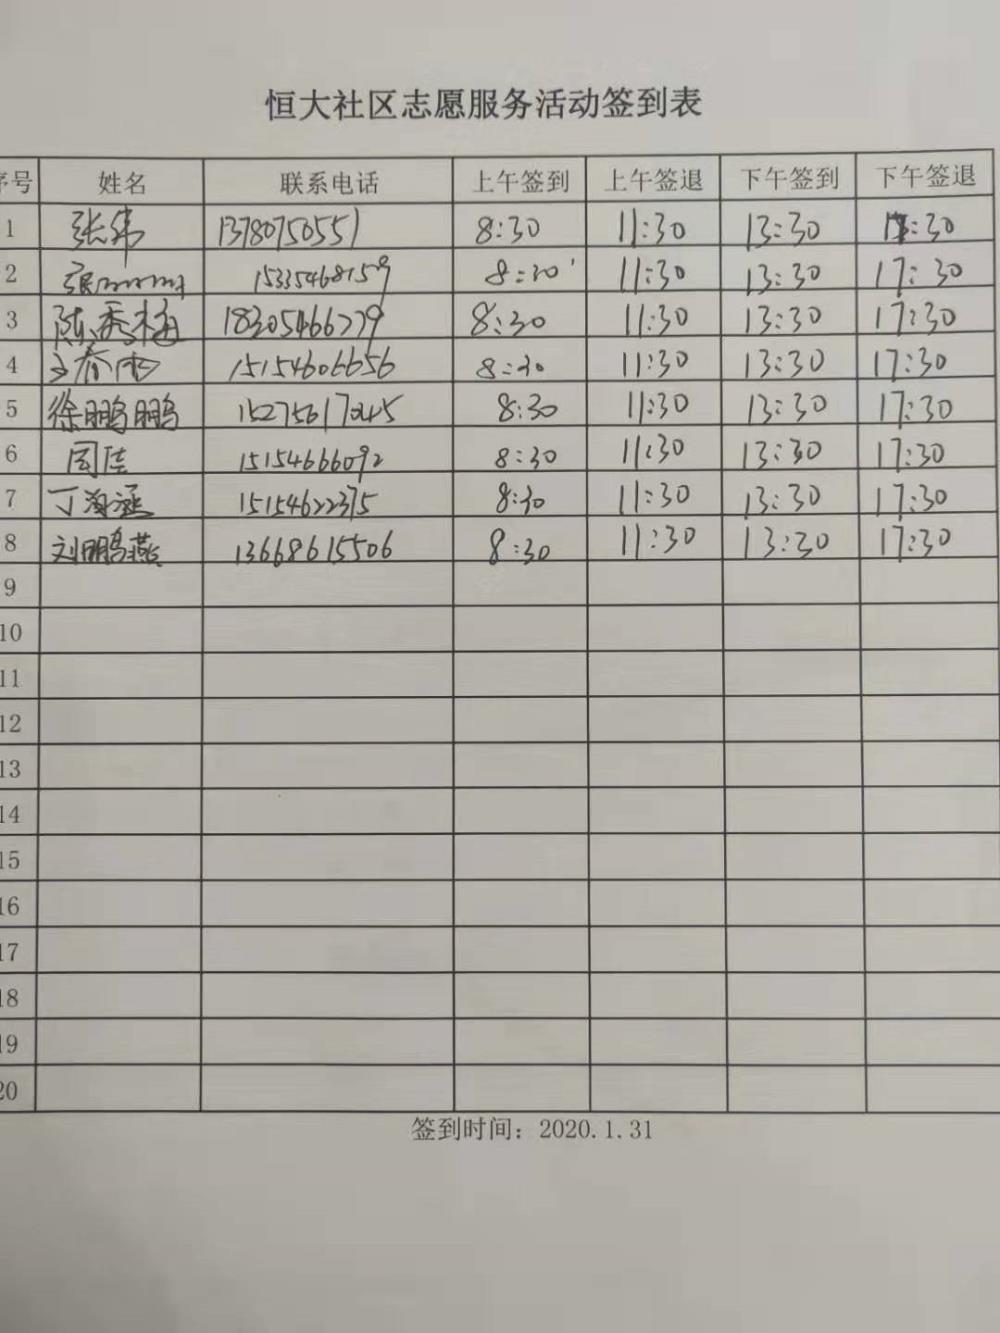 恒大社区志愿服务活动签到表
序号 姓名 联系电话 上午签到 上午签退 下午签到 下午签退
1 张伟 13780750551 8:30 11:30 13:30 17:30
2 15335468159 8:30 11:30 13:30 17:30
3 陈秀梅 18305466779 8:30 11:30 13:30 17:30
4 15154606656 8:30 11:30 13:30 17:30
5 徐鹏鹏 15275617045 8:30 11:30 13:30 17:30
6 周佳 15154666092 8:30 11:30 13:30 17:30
7 丁海涵 15154622375 8:30 11:30 13:30 17:30
8 刘鹏燕 13668615506 8:30 11:30 13:30 17:30
9
10
11
12
13
14
15
16
17
18
19
20
签到时间：2020.1.31